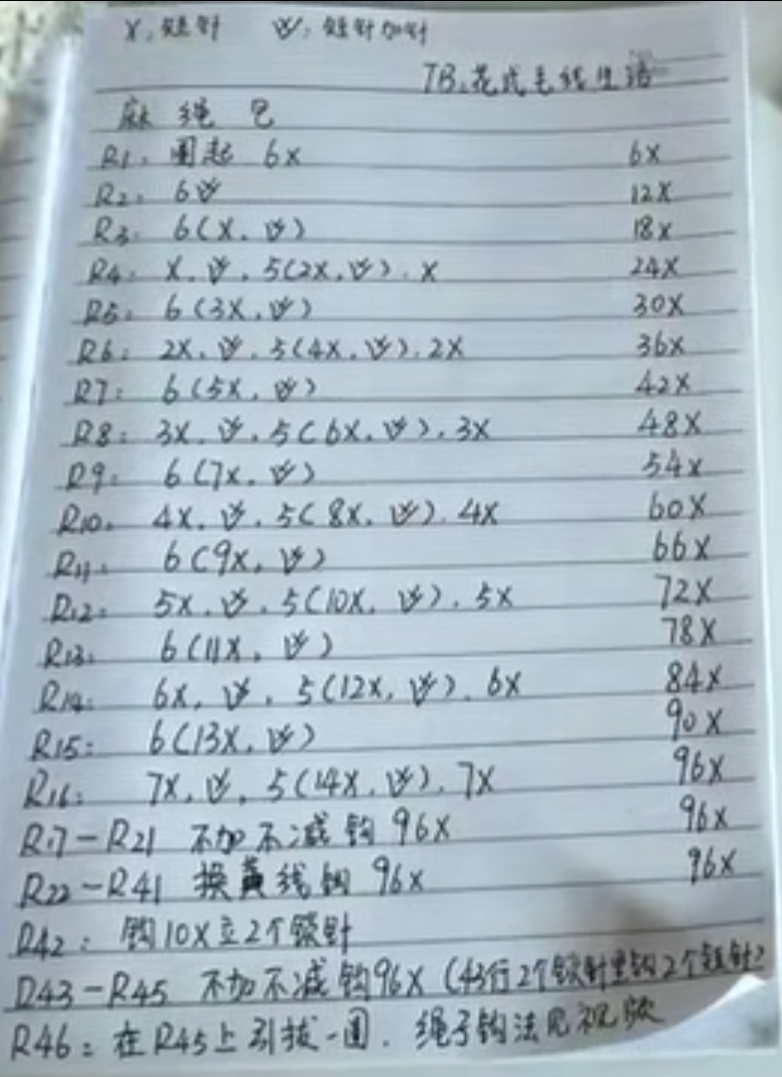 X:短针 V:短针加针
TB:花式毛线生活
麻绳包
R1: 圈起 6X 6X
R2: 6V 12X
R3: 6(X, V) 18X
R4: X, V, 5(2X, V), X 24X
R5: 6(3X, V) 30X
R6: 2X, V, 5(4X, V), 2X 36X
R7: 6(5X, V) 42X
R8: 3X, V, 5(6X, V), 3X 48X
R9: 6(7X, V) 54X
R10: 4X, V, 5(8X, V), 4X 60X
R11: 6(9X, V) 66X
R12: 5X, V, 5(10X, V), 5X 72X
R13: 6(11X, V) 78X
R14: 6X, V, 5(12X, V), 6X 84X
R15: 6(13X, V) 90X
R16: 7X, V, 5(14X, V), 7X 96X
R17-R21 不加不减钩 96X 96X
R22-R41 换黄线钩 96X 96X
R42: 钩10X立2个锁针
R43-R45 不加不减钩96X (43行2个锁针里钩2个短针)
R46: 在R45上引拔一圈. 绳子钩法见视频